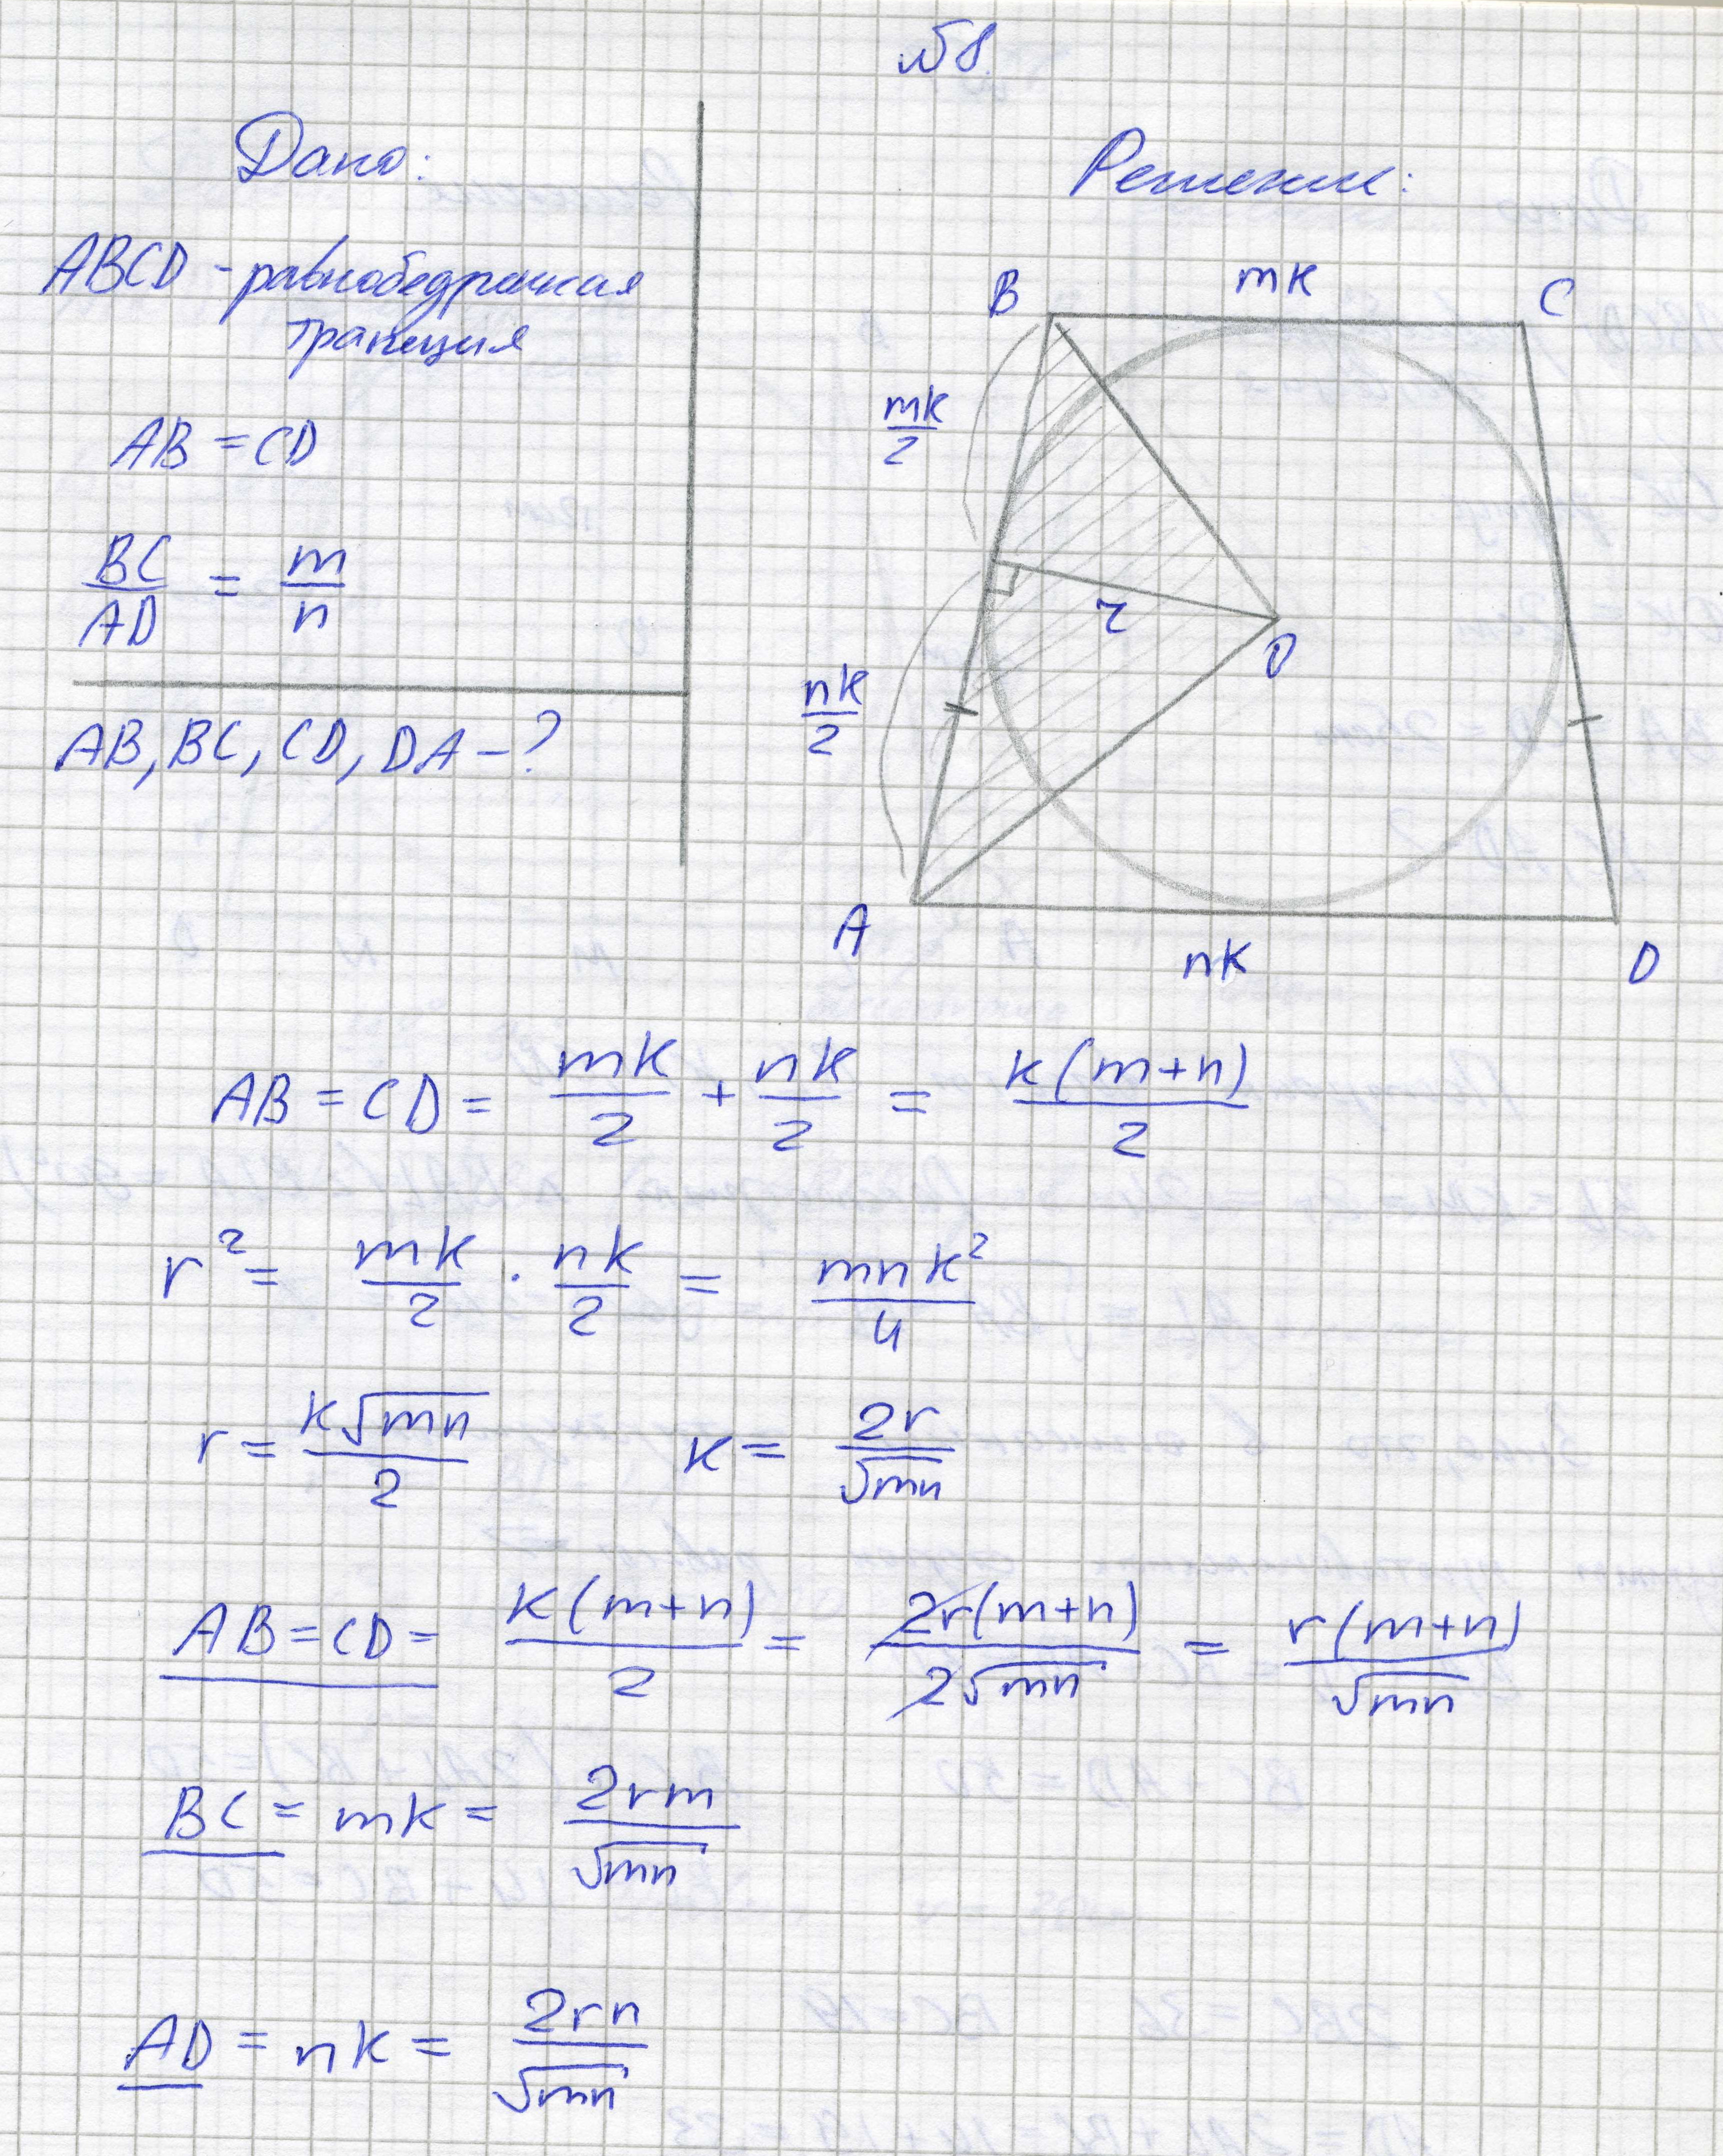 №8.
Дано:
ABCD - равнобедренная
трапеция
AB = CD
BC/AD = m/n
AB, BC, CD, DA - ?
Решение:
B mk C
mk/2
r
O
nk/2
A nk D
AB = CD = mk/2 + nk/2 = k(m+n)/2
r² = mk/2 · nk/2 = mnk²/4
r = k√mn/2 k = 2r/√mn
AB = CD = k(m+n)/2 = 2r(m+n)/2√mn = r(m+n)/√mn
BC = mk = 2rm/√mn
AD = nk = 2rn/√mn